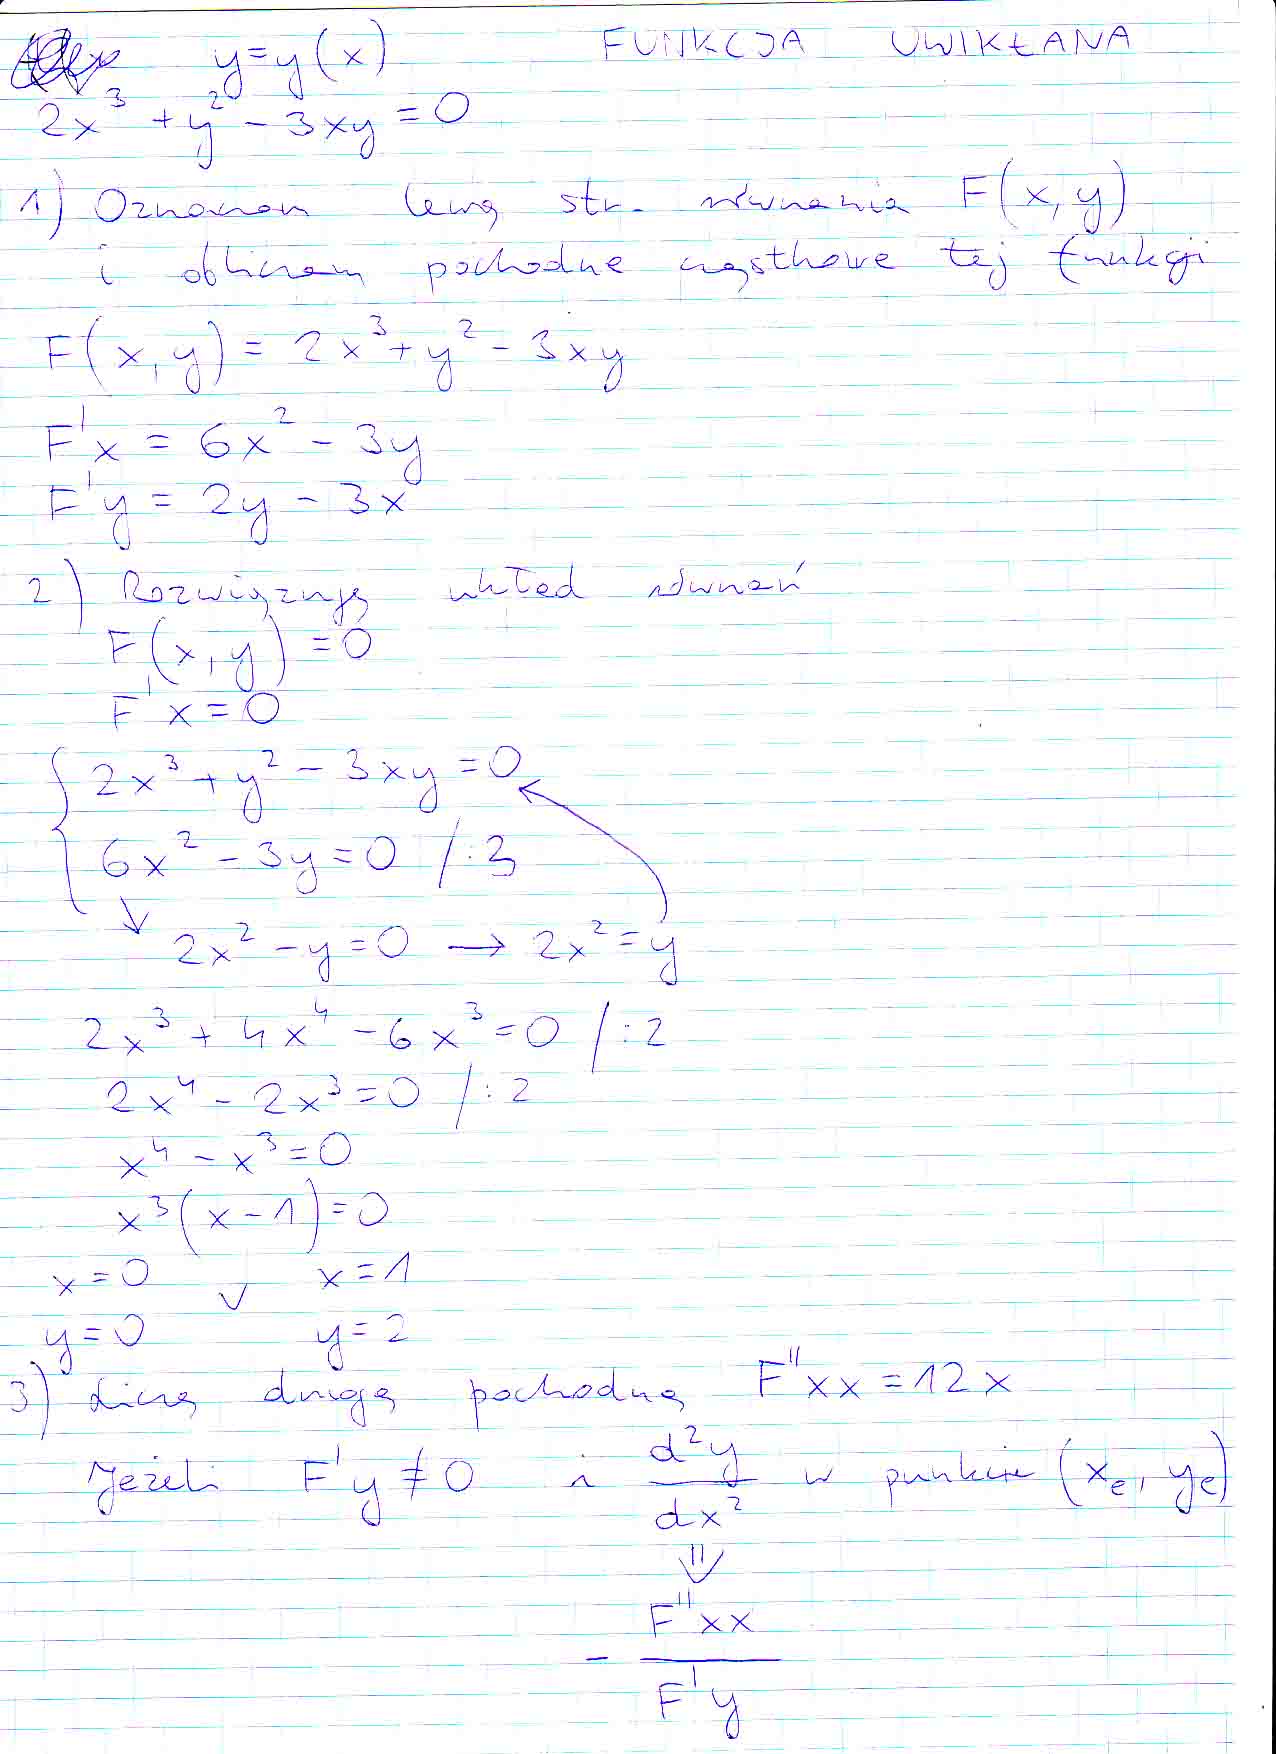 y=y(x) FUNKCJA UWIKŁANA
2x³ + y² - 3xy = 0
1) Oznaczam lewą str. równania F(x,y)
i obliczam pochodne cząstkowe tej funkcji
F(x,y) = 2x³ + y² - 3xy
F'x = 6x² - 3y
F'y = 2y - 3x
2) Rozwiązuję układ równań
F(x,y) = 0
F'x = 0
2x³ + y² - 3xy = 0
6x² - 3y = 0 /:3
2x² - y = 0 → 2x² = y
2x³ + 4x⁴ - 6x³ = 0 /:2
2x⁴ - 2x³ = 0 /:2
x⁴ - x³ = 0
x³(x-1) = 0
x = 0 ∨ x = 1
y = 0 y = 2
3) Liczę drugą pochodną F''xx = 12x
Jeżeli F'y ≠ 0 i d²y/dx² w punkcie (xe, ye)
⇓
- F''xx/F'y